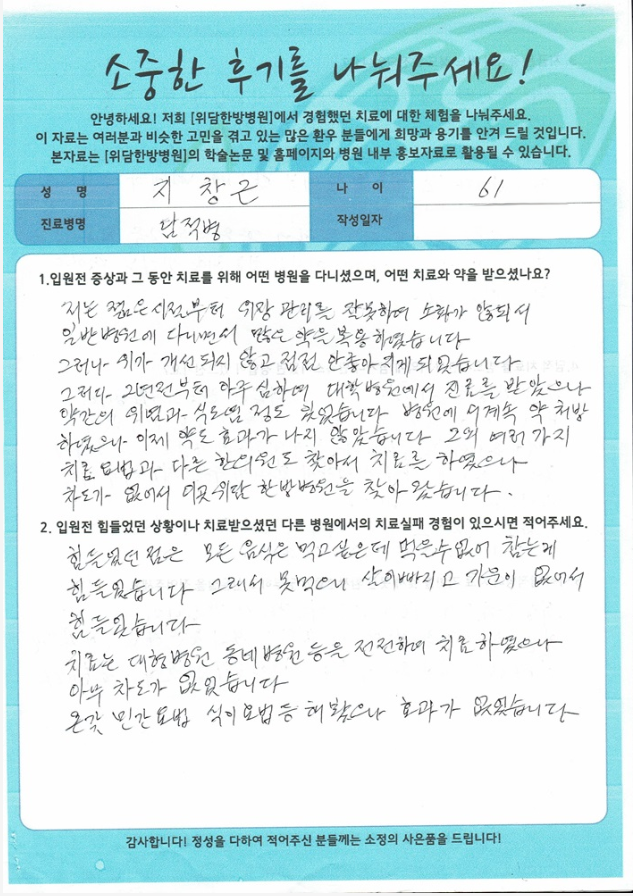 소중한 후기를 나눠주세요!
안녕하세요! 저희 [위담한방병원]에서 경험했던 치료에 대한 체험을 나눠주세요.
이 자료는 여러분과 비슷한 고민을 겪고 있는 많은 환우 분들에게 희망과 용기를 안겨 드릴 것입니다.
본자료는 [위담한방병원]의 학술논문 및 홈페이지와 병원 내부 홍보자료로 활용될 수 있습니다.
성 명 지창근 나 이 61
진료병명 담적병 작성일자
1.입원전 증상과 그 동안 치료를 위해 어떤 병원을 다니셨으며, 어떤 치료와 약을 받으셨나요?
저는 젊은시절부터 위장 관리를 잘못하여 소화가 안되서
일반병원에 다니면서 많은 약을 복용하였습니다
그러나 위가 개선되지 않고 점점 안좋아지게 되었습니다
그러다 2년전부터 아주 심하여 대학병원에서 진료를 받았으나
약간의 위염과 식도염 정도 였었습니다 병원에서 계속 약 처방
하였으나 이제 약도 효과가 나지 않았습니다 그외 여러가지
치료 요법과 다른 한의원도 찾아서 치료를 하였으나
차도가 없어서 이곳 위담 한방병원을 찾아 왔습니다.
2. 입원전 힘들었던 상황이나 치료받으셨던 다른 병원에서의 치료실패 경험이 있으시면 적어주세요.
힘들었던 점은 모든 음식은 먹고싶은데 먹을수없어 참는게
힘들었습니다 그래서 못먹으니 살이빠지고 기운이 없어서
힘들었습니다
치료는 대형병원 동네병원 등을 전전하여 치료하였으나
아무 차도가 없었습니다
온갖 민간요법 식이요법등 해봤으나 효과가 없었습니다
감사합니다! 정성을 다하여 적어주신 분들께는 소정의 사은품을 드립니다!